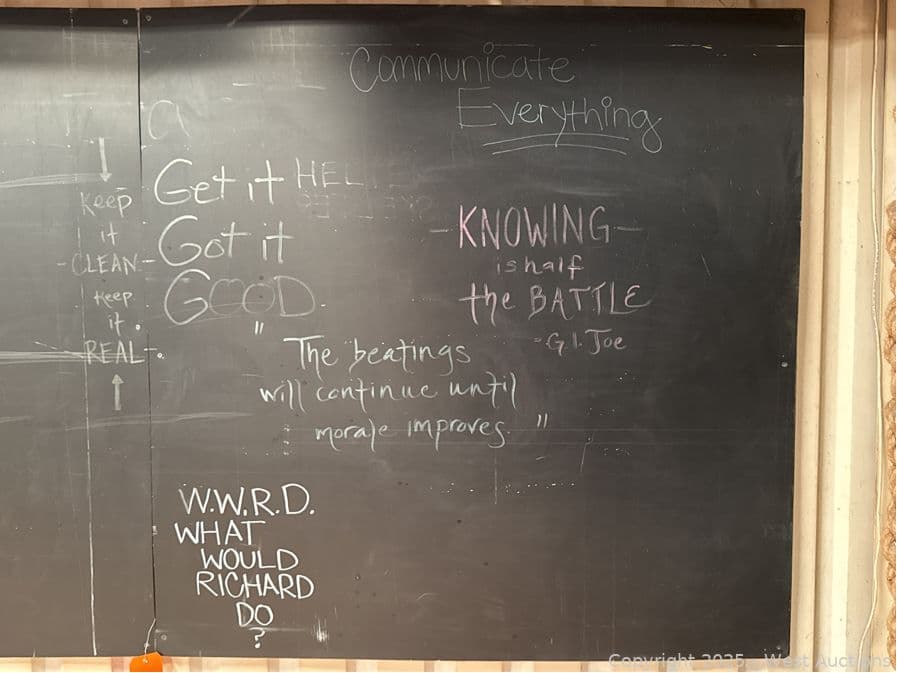 Communicate
Everything
Keep
it
-CLEAN-
Keep
it.
-REAL-.
Get it HEL
Got it
GOOD
- KNOWING -
is half
the BATTLE
- G.I. Joe
"The beatings
will continue until
morale improves."
W.W.R.D.
WHAT
WOULD
RICHARD
DO
?
Copyright 2025 - West Auctions